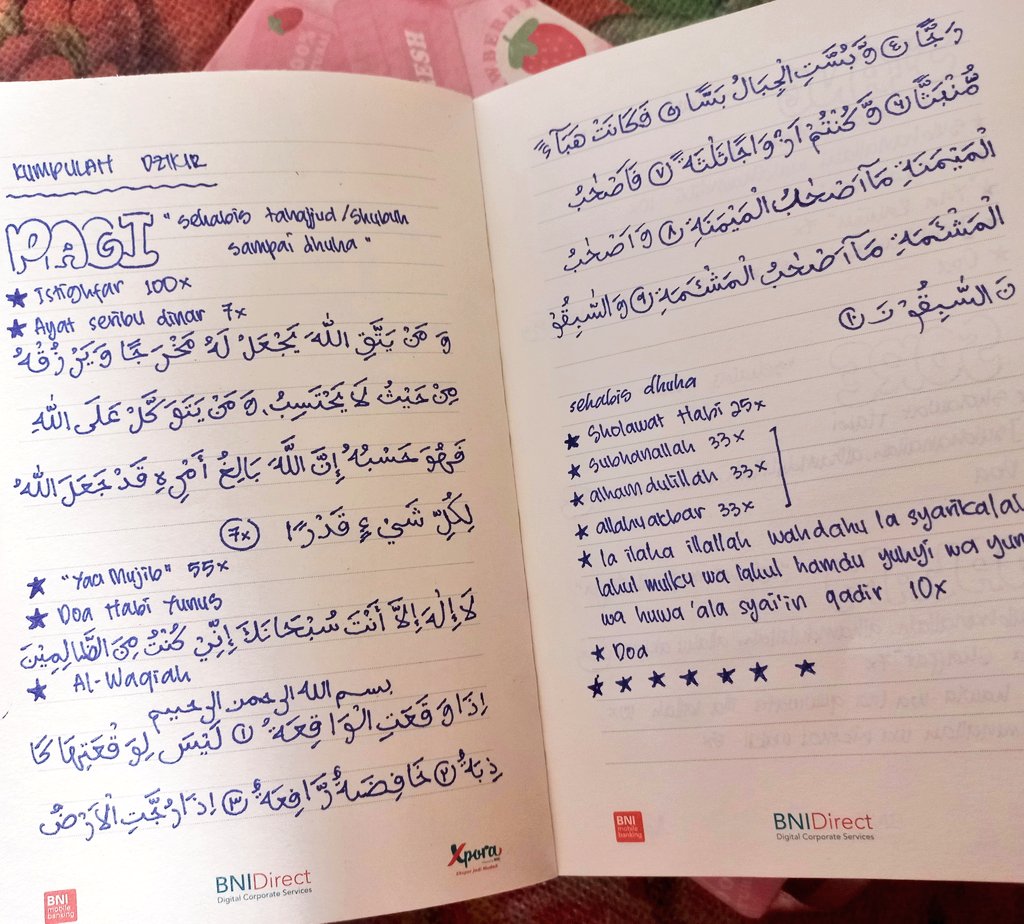 KUMPULAH DZIKIR
PAGI "sehabis tahajjud/shubuh
sampai dhuha"
★ Istighfar 100x
★ Ayat seribu dinar 7x
وَ مَنْ يَتَّقِ اللّٰهَ يَجْعَلْ لَهُ مَخْرَجًا وَ يَرْزُقْهُ
مِنْ حَيْثُ لَا يَحْتَسِبُ. وَ مَنْ يَتَوَكَّلْ عَلَى اللّٰهِ
فَهُوَ حَسْبُهُ إِنَّ اللَّهَ بَالِغُ أَمْرِهِ قَدْ جَعَلَ اللّٰهُ
لِكُلِّ شَيْءٍ قَدْرًا (7x)
★ "Yaa Mujib" 55x
★ Doa Nabi Yunus
لَا إِلٰهَ إِلَّا أَنْتَ سُبْحَانَكَ إِنِّيْ كُنْتُ مِنَ الظَّالِمِيْنَ
★ Al-Waqiah
بسم الله الرحمن الرحيم
اِذَا وَقَعَتِ الْوَاقِعَةُ ١ لَيْسَ لِوَقْعَتِهَا كَا
ذِبَةٌ ٢ خَافِضَةٌ رَّافِعَةٌ ٣ اِذَا رُجَّتِ الْاَرْضُ
BNI mobile banking
BNIDirect
Digital Corporate Services
Xpora
رَجًّا ٤ وَّ بُسَّتِ الْجِبَالُ بَسًّا ٥ فَكَانَتْ هَبَاۤءً
مُّنْبَثًّا ٦ وَّ كُنْتُمْ اَزْوَاجًا ثَلٰثَةً ٧ فَاَصْحٰبُ
الْمَيْمَنَةِ مَآ اَصْحٰبُ الْمَيْمَنَةِ ٨ وَ اَصْحٰبُ
الْمَشْـَٔمَةِ مَآ اَصْحٰبُ الْمَشْـَٔمَةِ ٩ وَ السّٰبِقُوْ
نَ السّٰبِقُوْنَ ١٠
sehabis dhuha
★ Sholawat Nabi 25x
★ Subhanallah 33x
★ alhamdulillah 33x
★ allahuakbar 33x
★ la ilaha illallah wahdahu la syarikalal
lahul mulku wa lahul hamdu yuhyi wa yum
wa huwa 'ala syai'in qadir 10x
★ Doa
★ ★ ★ ★ ★ ★ ★
BNI mobile banking
BNIDirect
Digital Corporate Services